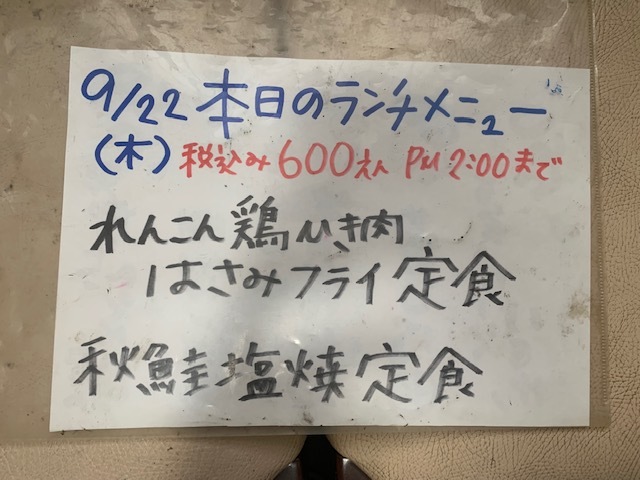 9/22 本日のランチメニュー
(木) 税込み600えん PM 2:00まで
れんこん鶏ひき肉
はさみフライ定食
秋鮭塩焼定食